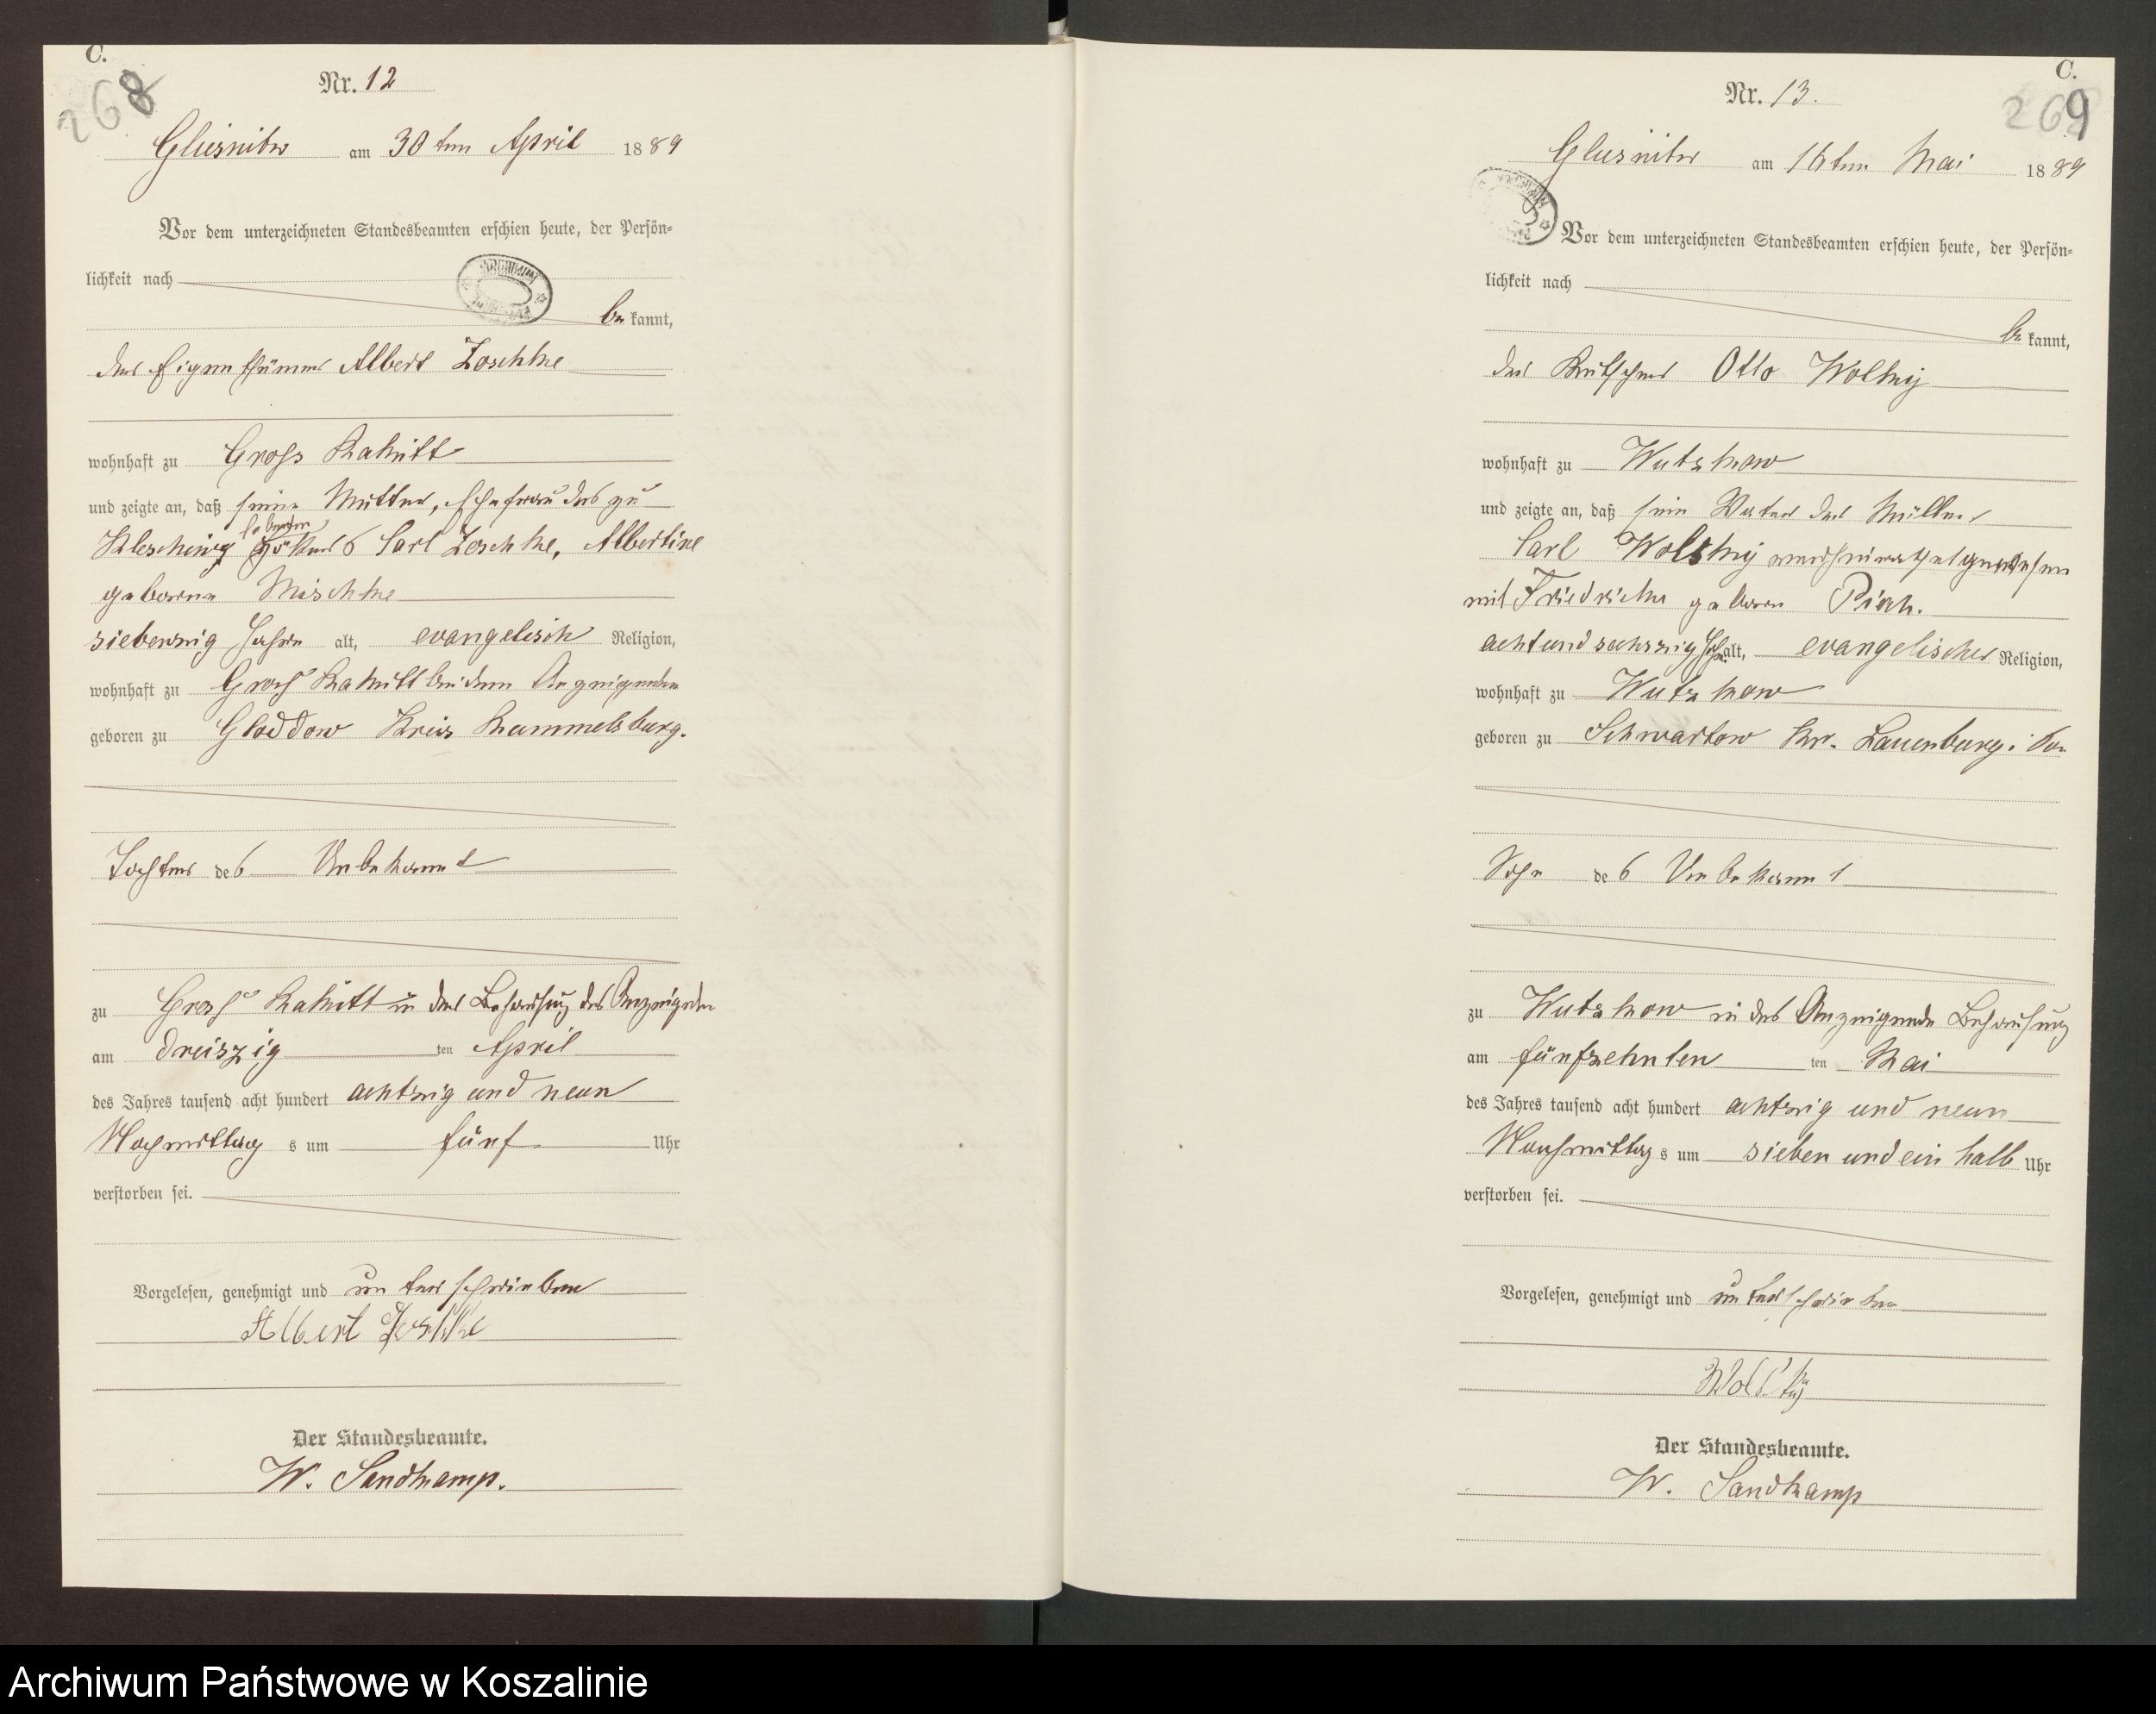 C.
268
Nr. 12
Glusnitz am 30ten April 1889
Vor dem unterzeichneten Standesbeamten erschien heute, der Persön-
lichkeit nach
be kannt,
der Eigenthümer Albert Zoschke
wohnhaft zu Gross Rakitt
und zeigte an, daß seine Mutter, Ehefrau des zu
Kleschinz lebenden Carl Zoschke, Albertine
geborene Mischke
siebenzig Jahre alt, evangelisch Religion,
wohnhaft zu Gross Rakitt bei dem Anzeigenden
geboren zu Gloddow Kreis Rummelsburg.
Tochter des Unbekannt
zu Gross Rakitt in der Behausung des Anzeigenden
am dreiszig ten April
des Jahres tausend acht hundert achtzig und neun
Nachmittag s um fünf Uhr
verstorben sei.
Vorgelesen, genehmigt und unterschrieben
Albert Zoschke
Der Standesbeamte.
W. Sandkamp.
C.
269
Nr. 13.
Glusnitz am 16ten Mai 1889
Vor dem unterzeichneten Standesbeamten erschien heute, der Persön-
lichkeit nach
be kannt,
der Kutscher Otto
wohnhaft zu Wutzkow
und zeigte an, daß sein Vater der Müller
Carl verheirathet gewesen
mit Friedrike geboren
achtundsechszig Jahre alt, evangelischer Religion,
wohnhaft zu Wutzkow
geboren zu Schwartow Kr. Lauenburg i Pom
Sohn des Unbekannt
zu Wutzkow in des Anzeigende Behausung
am fünfzehnten ten Mai
des Jahres tausend acht hundert achtzig und neun
Nachmittag s um sieben und ein halb Uhr
verstorben sei.
Vorgelesen, genehmigt und unterschrieben
Der Standesbeamte.
W. Sandkamp
Archiwum Państwowe w Koszalinie